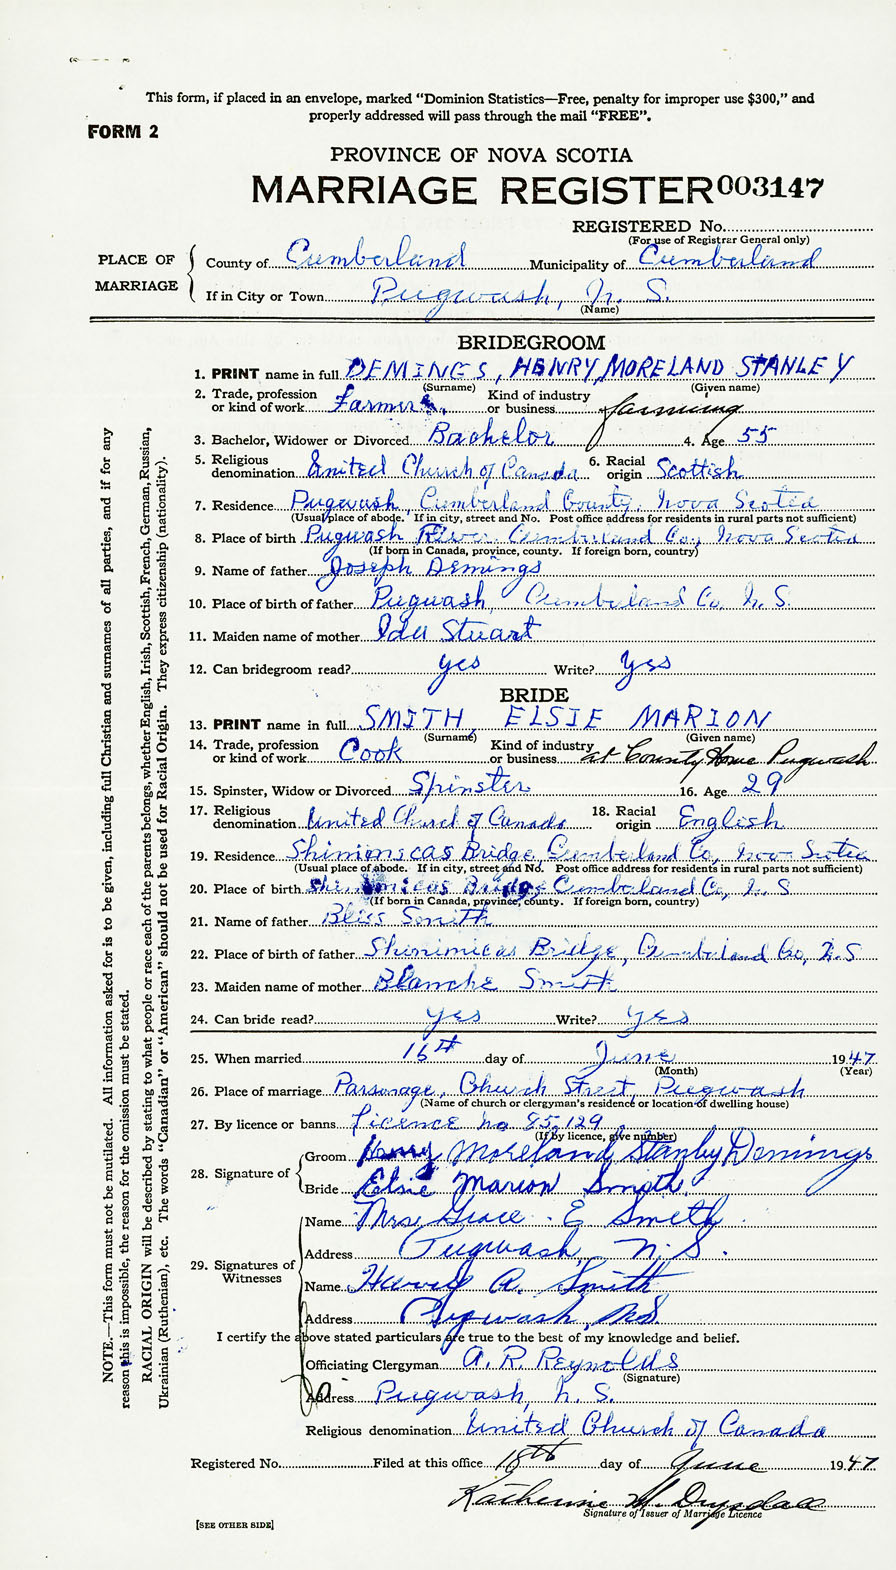 This form, if placed in an envelope, marked “Dominion Statistics—Free, penalty for improper use $300,” and
properly addressed will pass through the mail “FREE”.
FORM 2
PROVINCE OF NOVA SCOTIA
MARRIAGE REGISTER 003147
REGISTERED No.
(For use of Registrar General only)
PLACE OF MARRIAGE
County of Cumberland Municipality of Cumberland
If in City or Town Pugwash, N. S.
(Name)
BRIDEGROOM
1. PRINT name in full DEMINGS, HENRY MORELAND STANLEY
(Surname) (Given name)
2. Trade, profession or kind of work Farmer Kind of industry or business farming
3. Bachelor, Widower or Divorced Bachelor 4. Age 55
5. Religious denomination United Church of Canada 6. Racial origin Scottish
7. Residence Pugwash, Cumberland County, Nova Scotia
(Usual place of abode. If in city, street and No. Post office address for residents in rural parts not sufficient)
8. Place of birth Pugwash River Cumberland Co., Nova Scotia
(If born in Canada, province, county. If foreign born, country)
9. Name of father Joseph Demings
10. Place of birth of father Pugwash, Cumberland Co. N. S.
11. Maiden name of mother Ida Stuart
12. Can bridegroom read? yes Write? yes
BRIDE
13. PRINT name in full SMITH, ELSIE MARION
(Surname) (Given name)
14. Trade, profession or kind of work Cook Kind of industry or business at County Home Pugwash
15. Spinster, Widow or Divorced Spinster 16. Age 29
17. Religious denomination United Church of Canada 18. Racial origin English
19. Residence Shinimicas Bridge, Cumberland Co, Nova Scotia
(Usual place of abode. If in city, street and No. Post office address for residents in rural parts not sufficient)
20. Place of birth Shinimicas Bridge Cumberland Co, N. S
(If born in Canada, province, county. If foreign born, country)
21. Name of father Bliss Smith
22. Place of birth of father Shinimicas Bridge, Cumberland Co, N.S
23. Maiden name of mother Blanche Smith
24. Can bride read? yes Write? yes
25. When married 16th day of June 1947
(Month) (Year)
26. Place of marriage Parsonage, Church Street, Pugwash
(Name of church or clergyman's residence or location of dwelling house)
27. By licence or banns Licence no 85,129
(If by licence, give number)
28. Signature of
Groom Henry Moreland Stanley Demings
Bride Elsie Marion Smith
29. Signatures of Witnesses
Name Mrs. Grace E Smith
Address Pugwash, N.S.
Name Harry A. Smith
Address Pugwash, N.S.
I certify the above stated particulars are true to the best of my knowledge and belief.
Officiating Clergyman A. R. Reynolds
(Signature)
Address Pugwash, N. S.
Religious denomination United Church of Canada
Registered No. Filed at this office 18th day of June 1947
Katherine M. Drysdale
Signature of Issuer of Marriage Licence
[SEE OTHER SIDE]
NOTE.—This form must not be mutilated. All information asked for is to be given, including full Christian and surnames of all parties, and if for any
reason this is impossible, the reason for the omission must be stated.
RACIAL ORIGIN will be described by stating to what people or race each of the parents belongs, whether English, Irish, Scottish, French, German, Russian,
Ukrainian (Ruthenian), etc. The words “Canadian” or “American” should not be used for Racial Origin. They express citizenship (nationality).